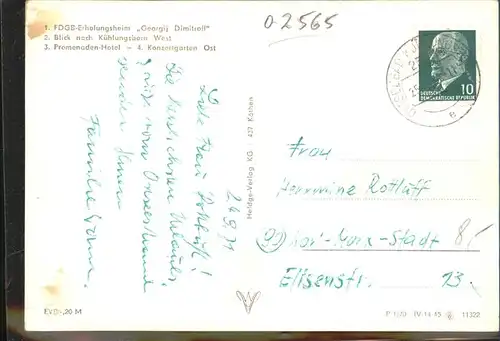 1. FDGB-Erholungsheim „Georgij Dimitroff"
2. Blick nach Kühlungsborn West
3. Promenaden-Hotel – 4. Konzertgarten Ost
0-2565
DEUTSCHE
DEMOKRATISCHE REPUBLIK
10
e
24.9.71
Liebe Frau Rottluff!
Die herzlichsten Urlaubs-
grüße vom Ostseestrand
senden Ihnen
Familie
Heldge-Verlag KG 437 Köthen
Frau
Hermine Rottluff
90 Karl-Marx-Stadt
Elisenstr. 13.
EVP -,20 M
P 1/70 IV-14-45 11322